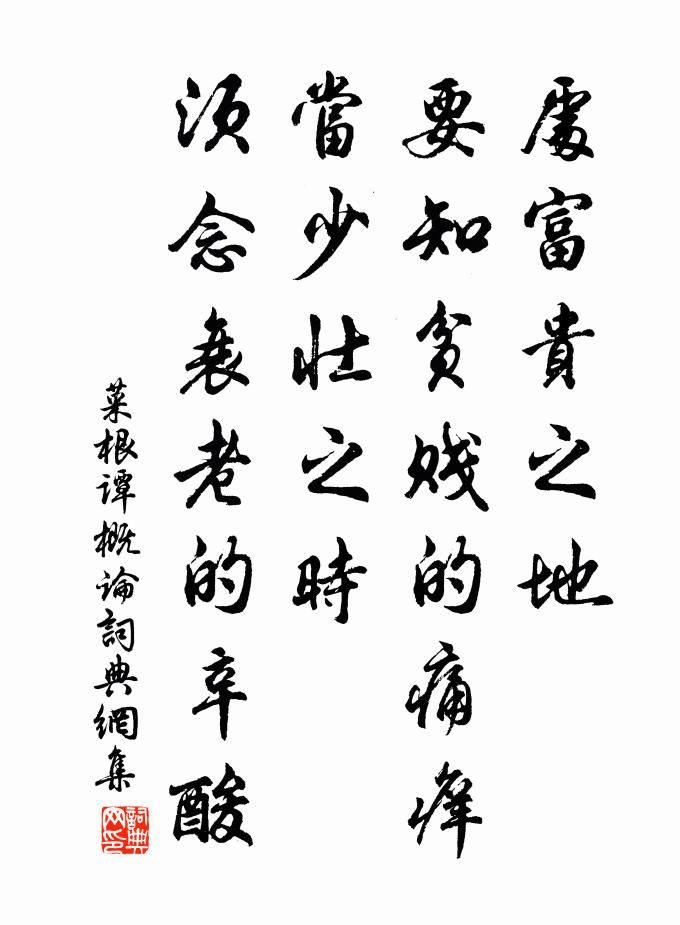 處富貴之地
要知貧賤的痛癢
當少壯之時
須念衰老的辛酸
菜根譚概論詞典網集
詞典网印